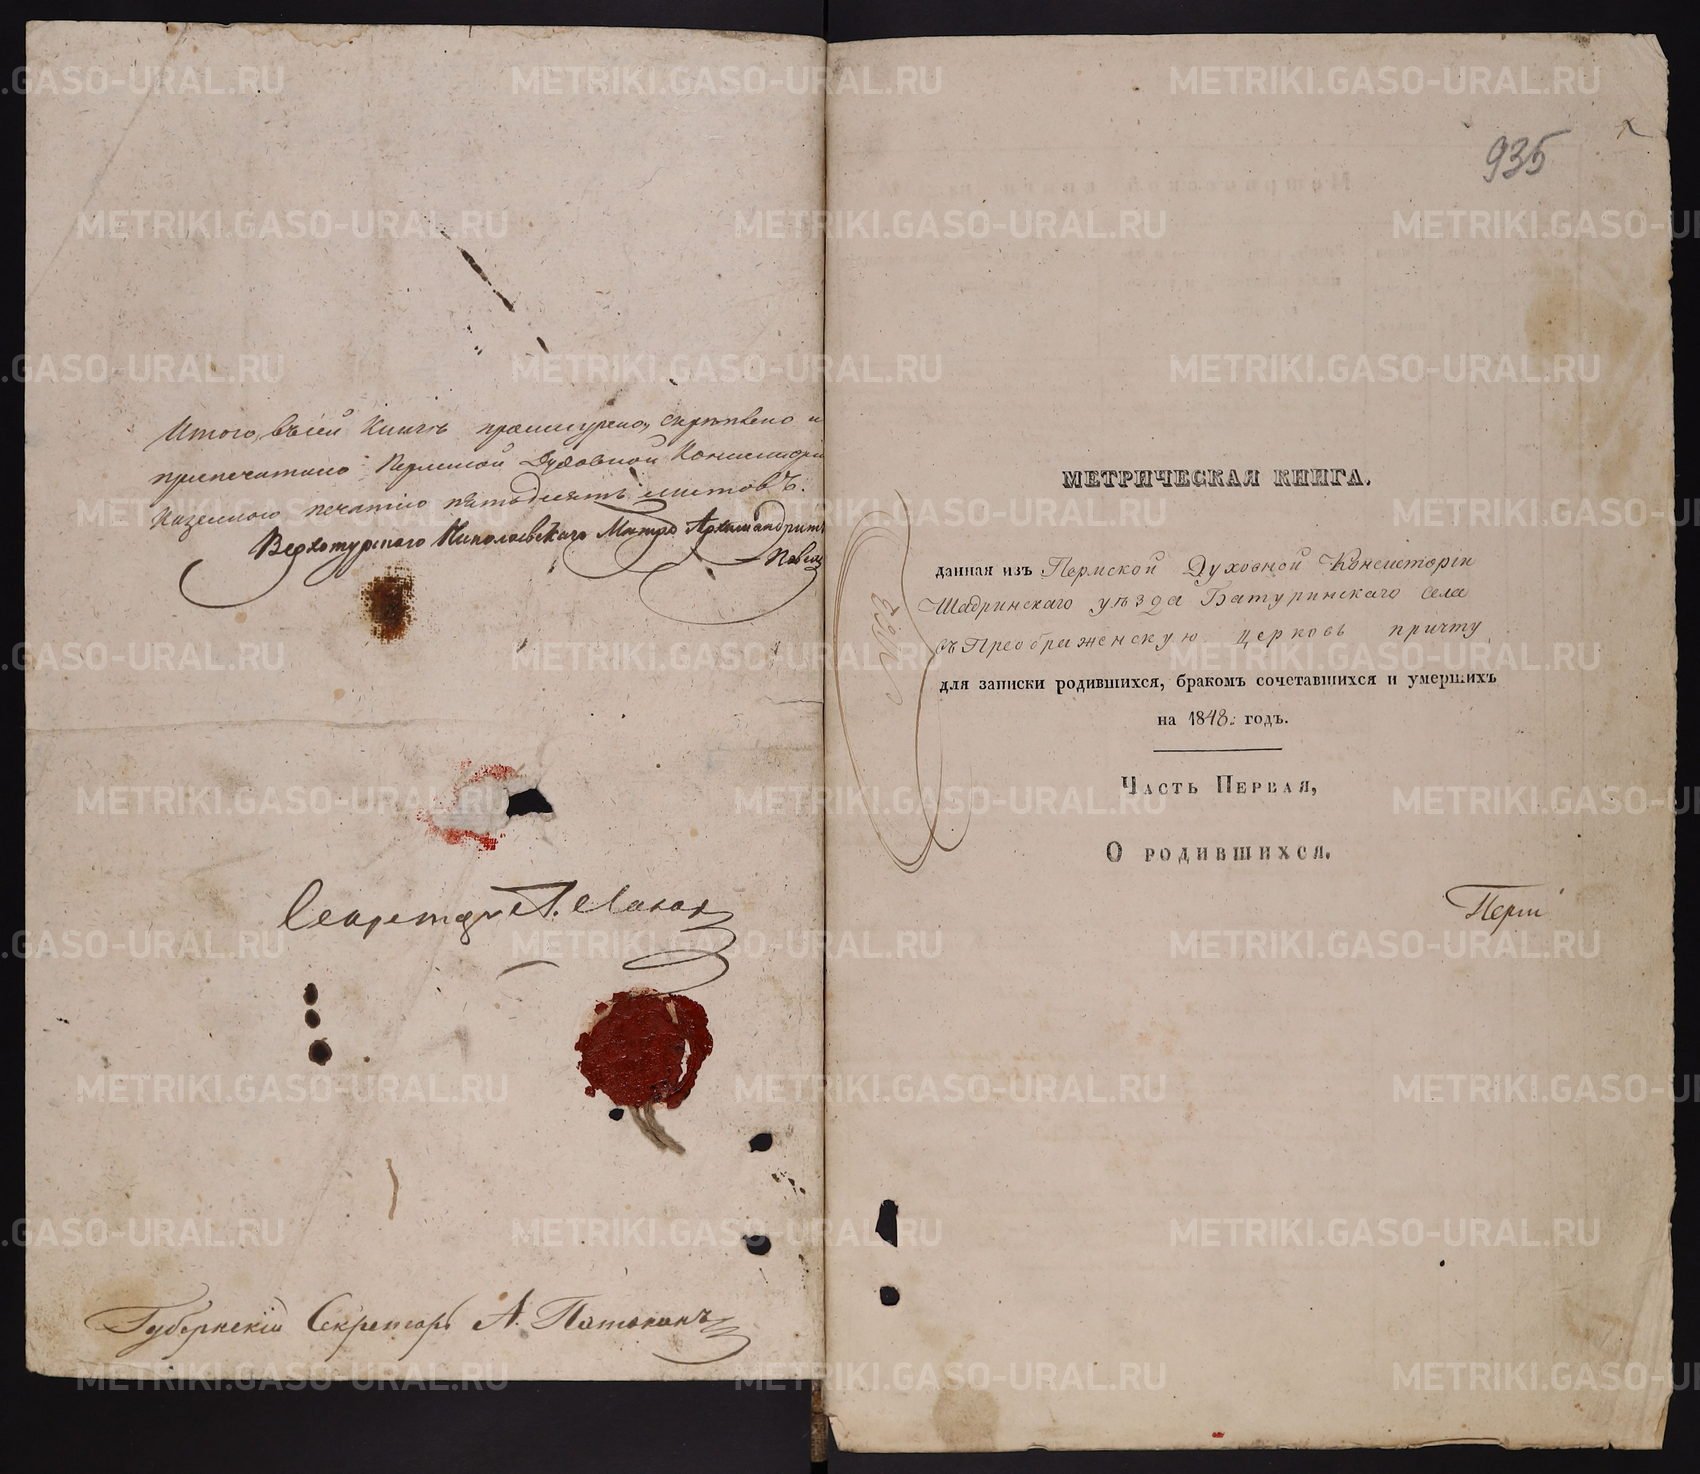 Итого въ сей Книгѣ прошнурено, скрѣплено и
припечатано Пермской Духовной Консисторіи
Казенною печатью пятьдесятъ листовъ.
Верхотурскаго Николаевскаго Мнтря Архимандритъ
Секретарь А.
Губернскій Секретарь А.
935
МЕТРИЧЕСКАЯ КНИГА.
данная изъ Пермской Духовной Консисторіи
Шадринскаго уѣзда Батуринскаго села
въ Преображенскую церковь причту
для записки родившихся, бракомъ сочетавшихся и умершихъ
на 1848. годъ.
Часть Первая,
О родившихся.
METRIKI.GASO-URAL.RU